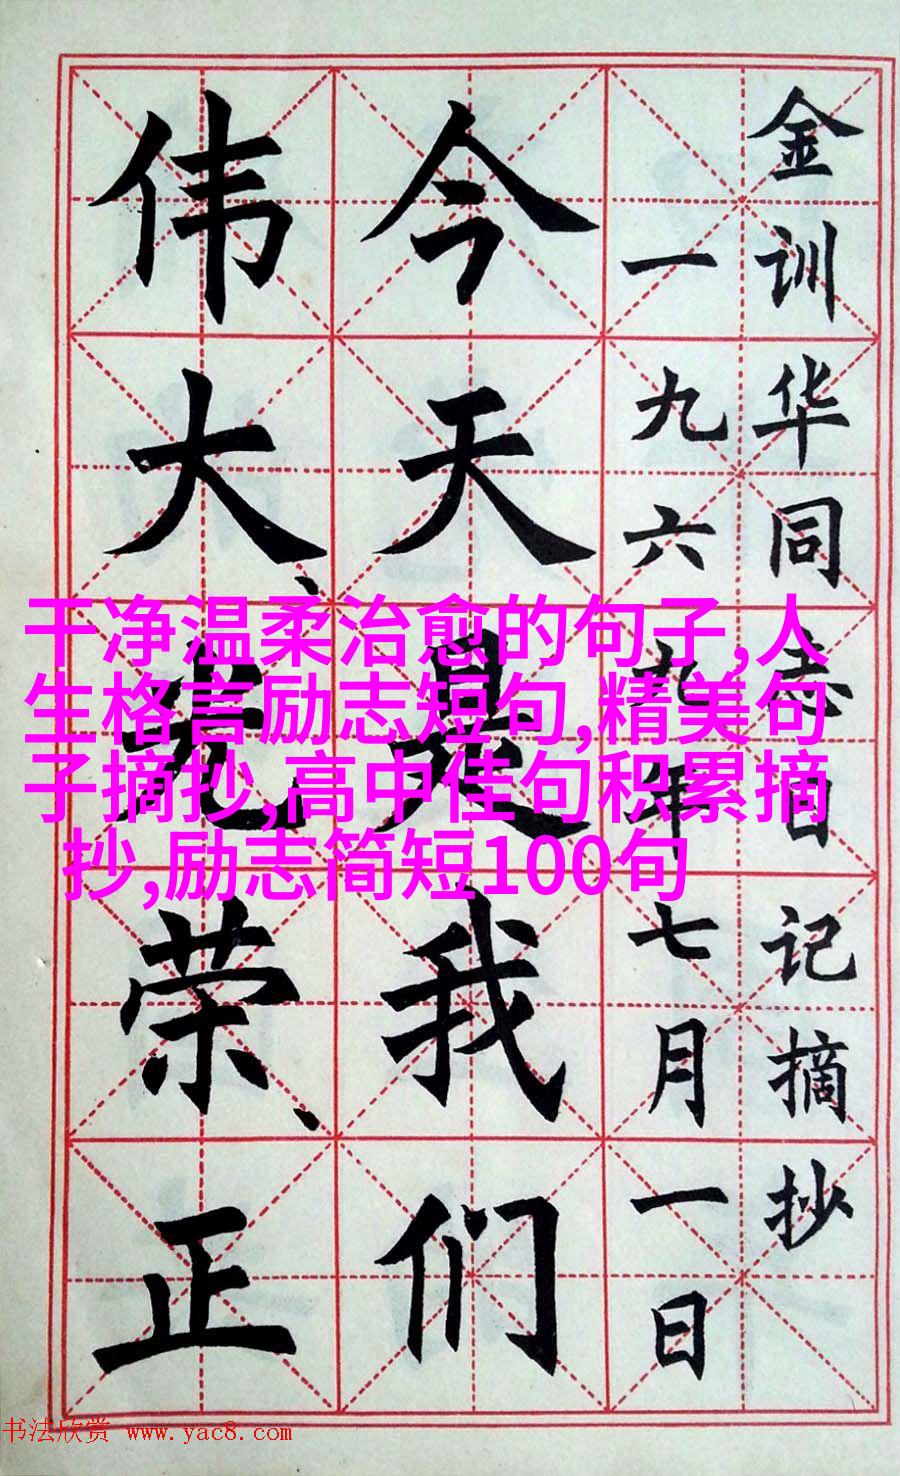 金训华同志日记摘抄
一九六九年七月一日
今天是我们
伟大、光荣、正
干净温柔治愈的句子,人
生格言励志短句,精美句
子摘抄,高中佳句积累摘
抄,励志简短100句
书法欣赏 www.yac8.com